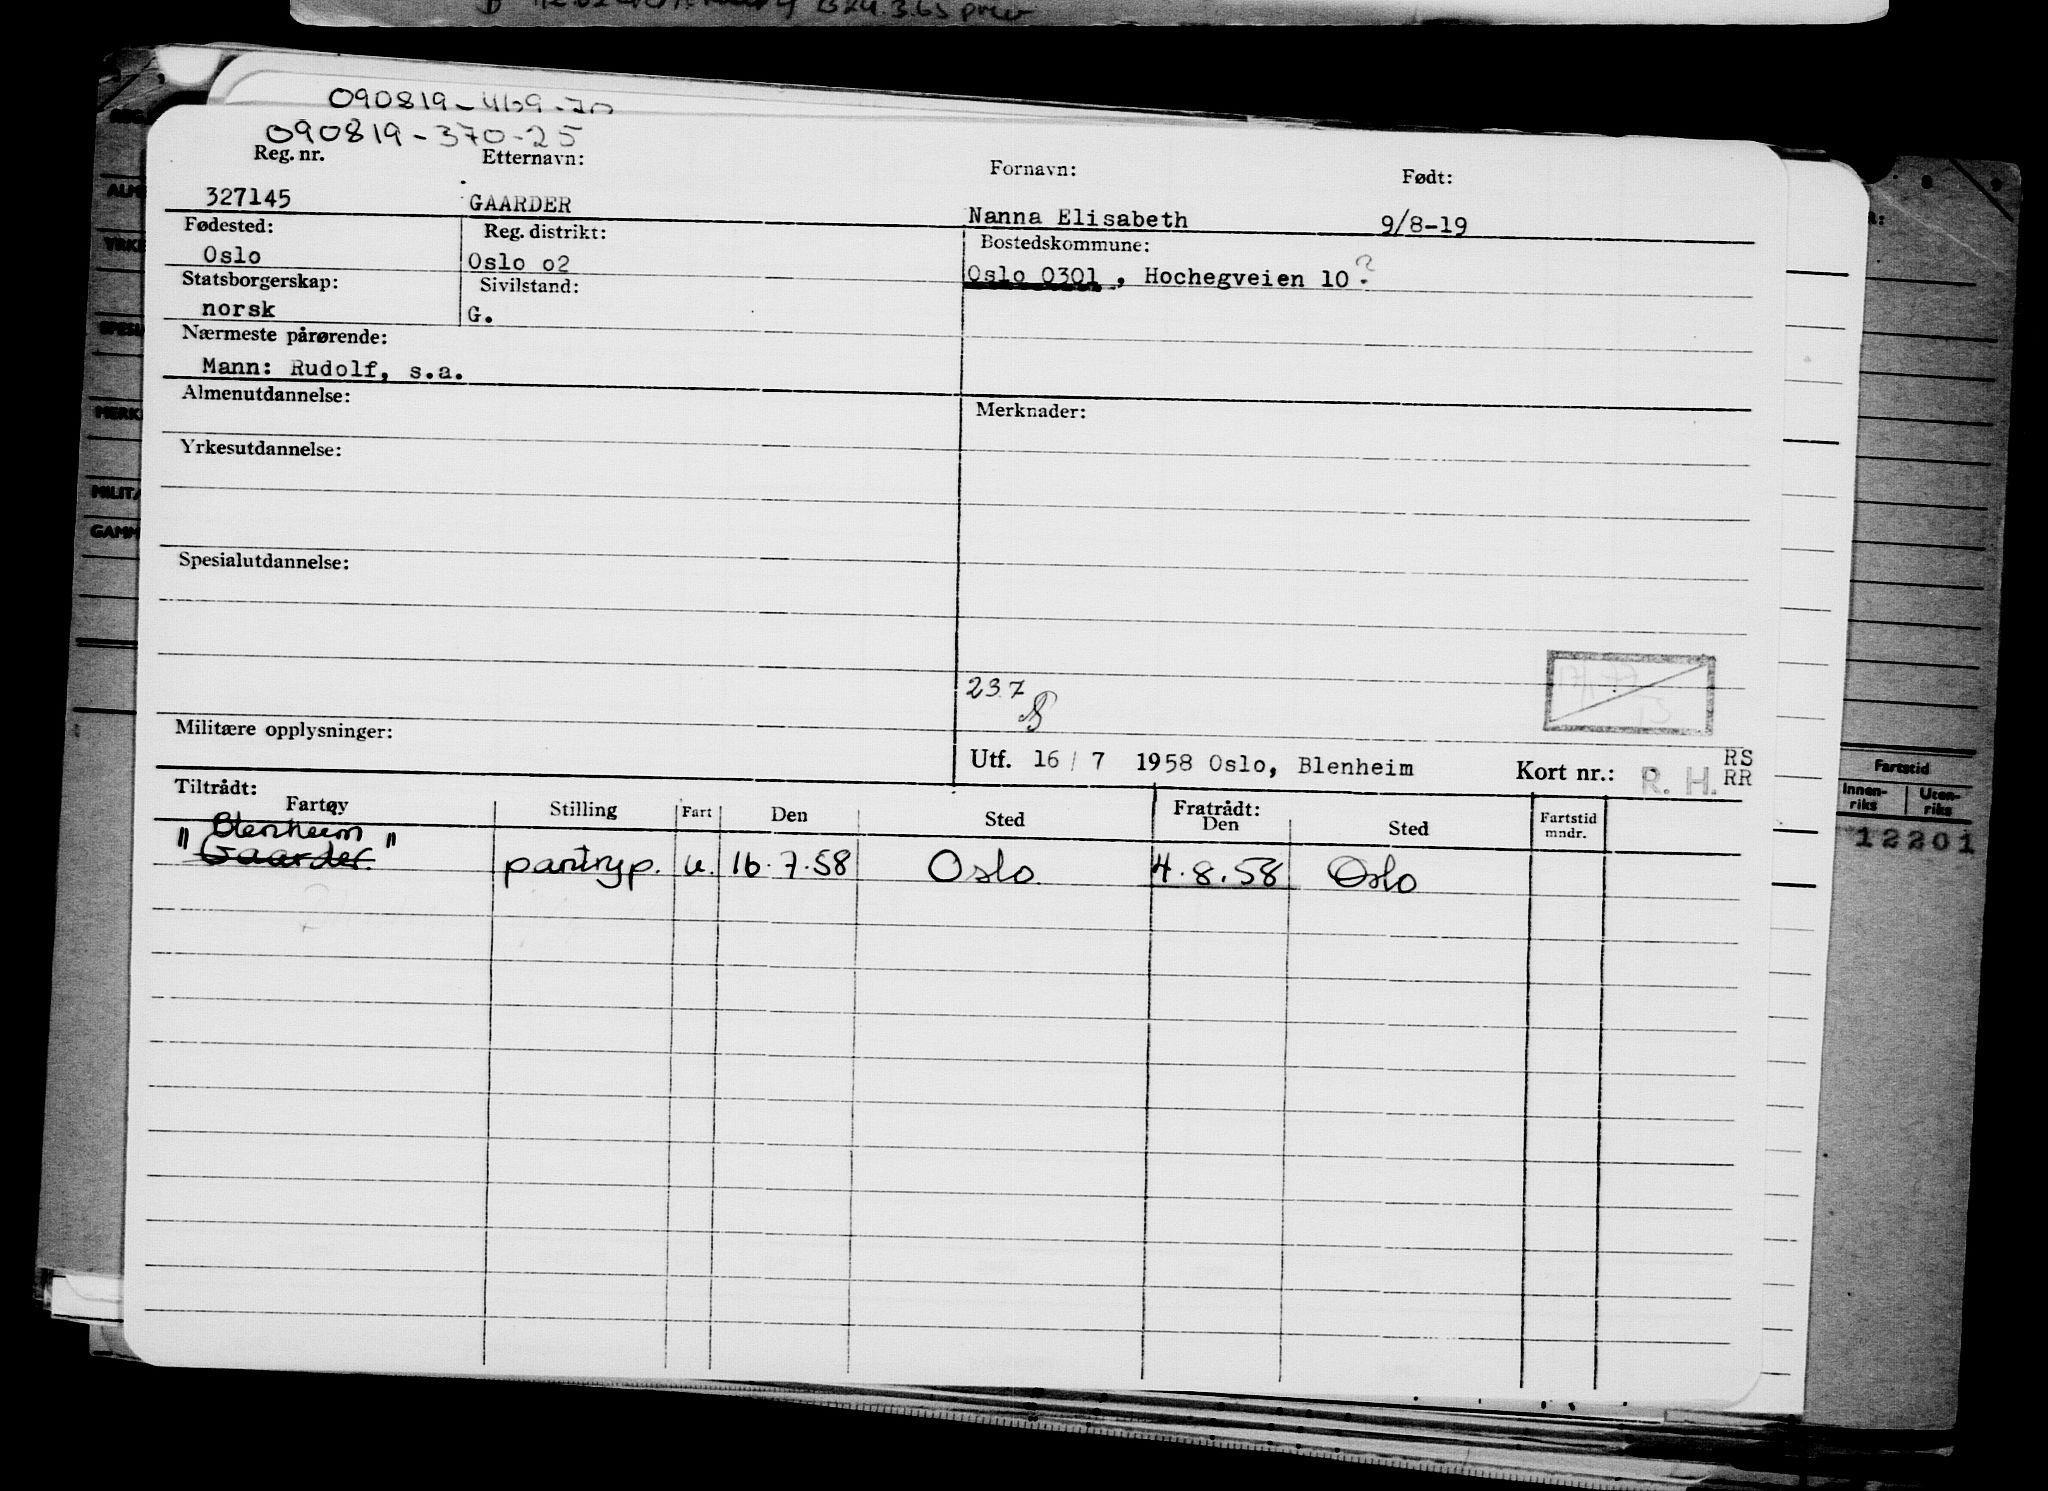 090819-469-70
090819-370-25
Reg. nr. Etternavn: Fornavn: Født:
327145 GAARDER Nanna Elisabeth 9/8-19
Fødested: Reg. distrikt: Bostedskommune:
Oslo Oslo o2 Oslo 0301, Hochegveien 10?
Statsborgerskap: Sivilstand:
norsk G.
Nærmeste pårørende:
Mann: Rudolf, s.a.
Almenutdannelse: Merknader:
Yrkesutdannelse:
Spesialutdannelse:
237
Militære opplysninger:
Utf. 16/7 1958 Oslo, Blenheim Kort nr.: R. H. RS RR
Tiltrådt: Fratrådt:
Fartøy Stilling Fart Den Sted Den Sted Fartstid mndr.
"Blenheim"
Gaarder. pantryp. u. 16.7.58 Oslo 4.8.58 Oslo
Fartstid
Innen-riks Uten-riks
12201